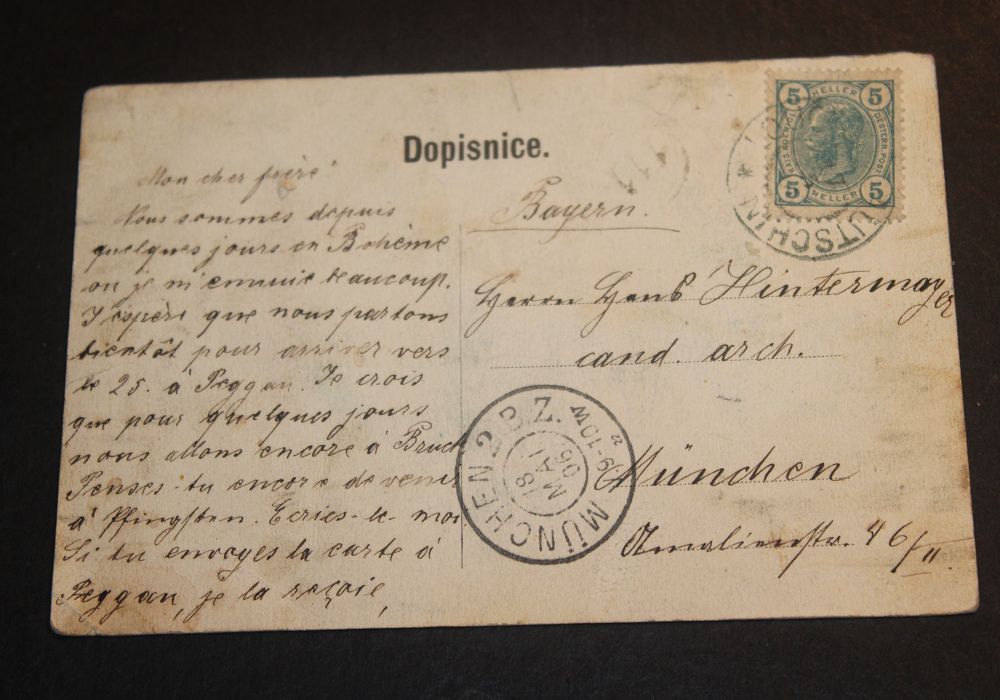 Dopisnice.
Mon cher frère!
Nous sommes depuis
quelques jours en Bohème
ou je m'ennuie beaucoup.
J'espère que nous partons
bientôt pour arriver vers
le 25. à Peggau. Je crois
que pour quelques jours
nous allons encore à Bruck
Penses-tu encore de venir
à Pfingsten. Ecries-le-moi
Si tu envoyes la carte à
Peggau, je la reçoie,
Bayern.
Herrn Hans Hintermayer
cand. arch.
München
Amalienstr. 46/II.
5 HELLER 5
KAIS. KOENIGL. OESTERR. POST
5 HELLER 5
UTSCHIN *
MÜNCHEN 2 B.Z.
18 MAI 06